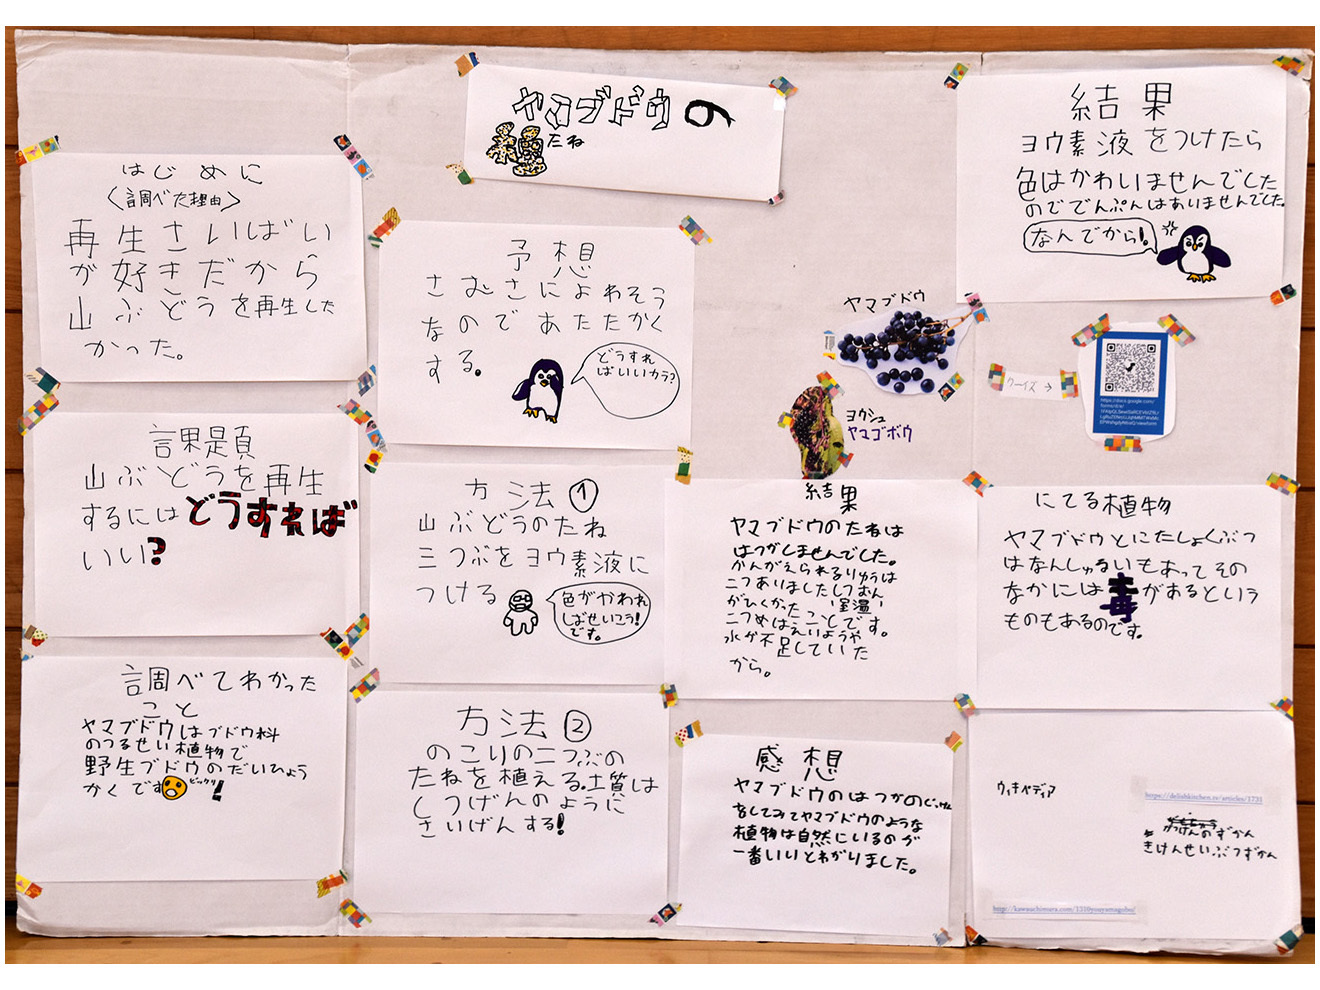 ヤマブドウの
種たね
はじめに
〈調べた理由〉
再生さいばい
が好きだから
山ぶどうを再生した
かった。
課題
山ぶどうを再生
するにはどうすれば
いい?
調べてわかった
こと
ヤマブドウはブドウ科
のつるせい植物で
野生ブドウのだいひょう
かくです ビックリ!
予想
さむさによわそう
なのであたたかく
する。
どうすれ
ばいいカラ?
方法①
山ぶどうのたね
三つぶをヨウ素液に
つける
色がかわれ
ばせいこう!
です。
方法②
のこりの二つぶの
たねを植える。土質は
しつげんのように
さいげんする!
ヤマブドウ
ヨウシュ
ヤマゴボウ
結果
ヤマブドウのたねは
はつがしませんでした。
かんがえられるりゆうは
二つありましたしつおん
がひくかった '室温'
ことです。
二つめはえいようや
水が不足していた
から。
感想
ヤマブドウのはつがのじっけん
をしてみてヤマブドウのような
植物は自然にいるのが
一番いいとわかりました。
結果
ヨウ素液をつけたら
色はかわいませんでした
のででんぷんはありませんでした。
なんでから!
クーイズ→
にてる植物
ヤマブドウとにたしょくぶつ
はなんしゅるいもあってその
なかには毒があるという
ものもあるのです。
ウィキペディア
https://delishkitchen.tv/articles/1731
きけんせいぶつずかん